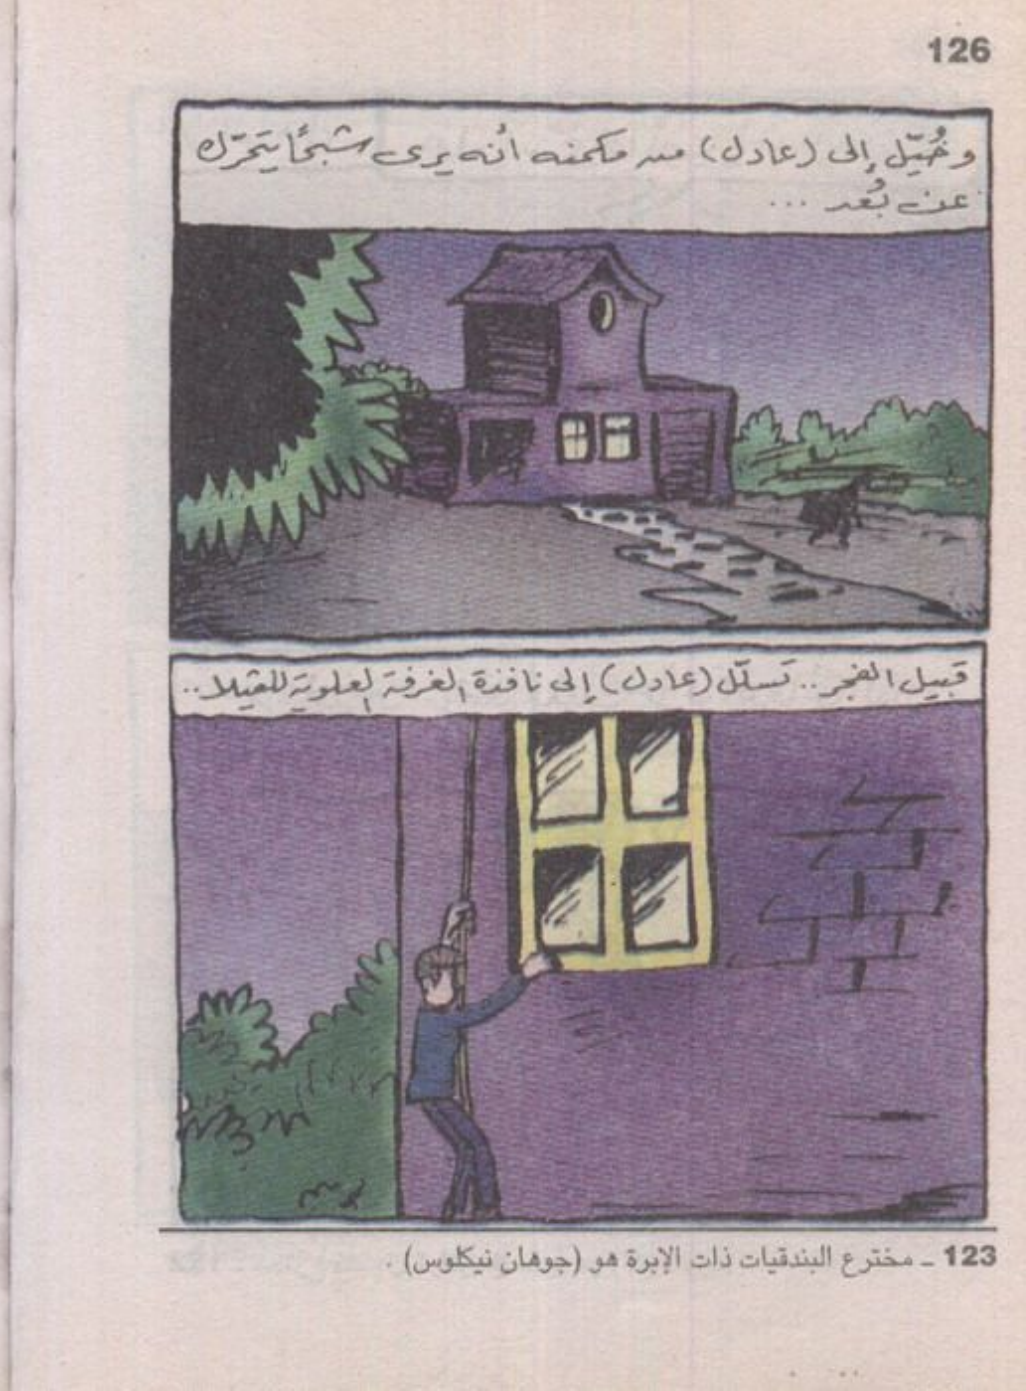 126
وخُيّل إلى (عادل) من مكمنه أنه يرى شبحًا يتحرّك
عن بُعد ...
قبيل الفجر .. تسلّل (عادل) إلى نافذة الغرفة العلوية للڤيلا ..
123 ـ مخترع البندقيات ذات الإبرة هو (جوهان نيكلوس) .